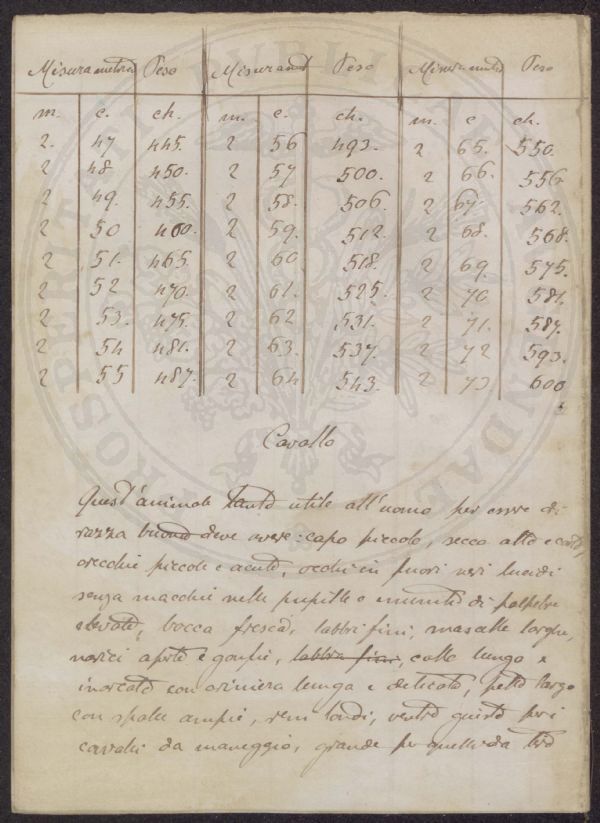 Misura metrica Peso Misura met Peso Misura met Peso
m. c. ch. m. c. ch. m. c ch.
2. 47 445. 2 56 493. 2 65. 550.
2 48. 450. 2 57 500. 2 66. 556.
2 49. 455. 2 58. 506. 2 67. 562.
2 50 460. 2 59. 512. 2 68. 568.
2 51. 465. 2 60 518. 2 69. 575.
2 52 470. 2 61. 525. 2 70. 581.
2 53. 475. 2 62 531. 2 71. 587.
2 54 481. 2 63. 537. 2 72 593.
2 55 487. 2 64 543. 2 73 600
Cavallo
Quest'animale tanto utile all'uomo per essere di
razza buona deve avere: capo piccolo, secco alto e corto,
orecchie piccole e acute, occhi in fuori neri lucidi
senza macchie nelle pupille e muniti di palpebre
elevate, bocca fresca, labbri fini, mascelle larghe,
narici aperte e gonfie, labbra fini, collo lungo e
inarcato con criniera lunga e delicata, petto largo
con spalle ampie, reni tondi, ventre giusto per i
cavalli da maneggio, grande per quelli da tiro
PROSPERITATI PUBLICAE AUGENDAE